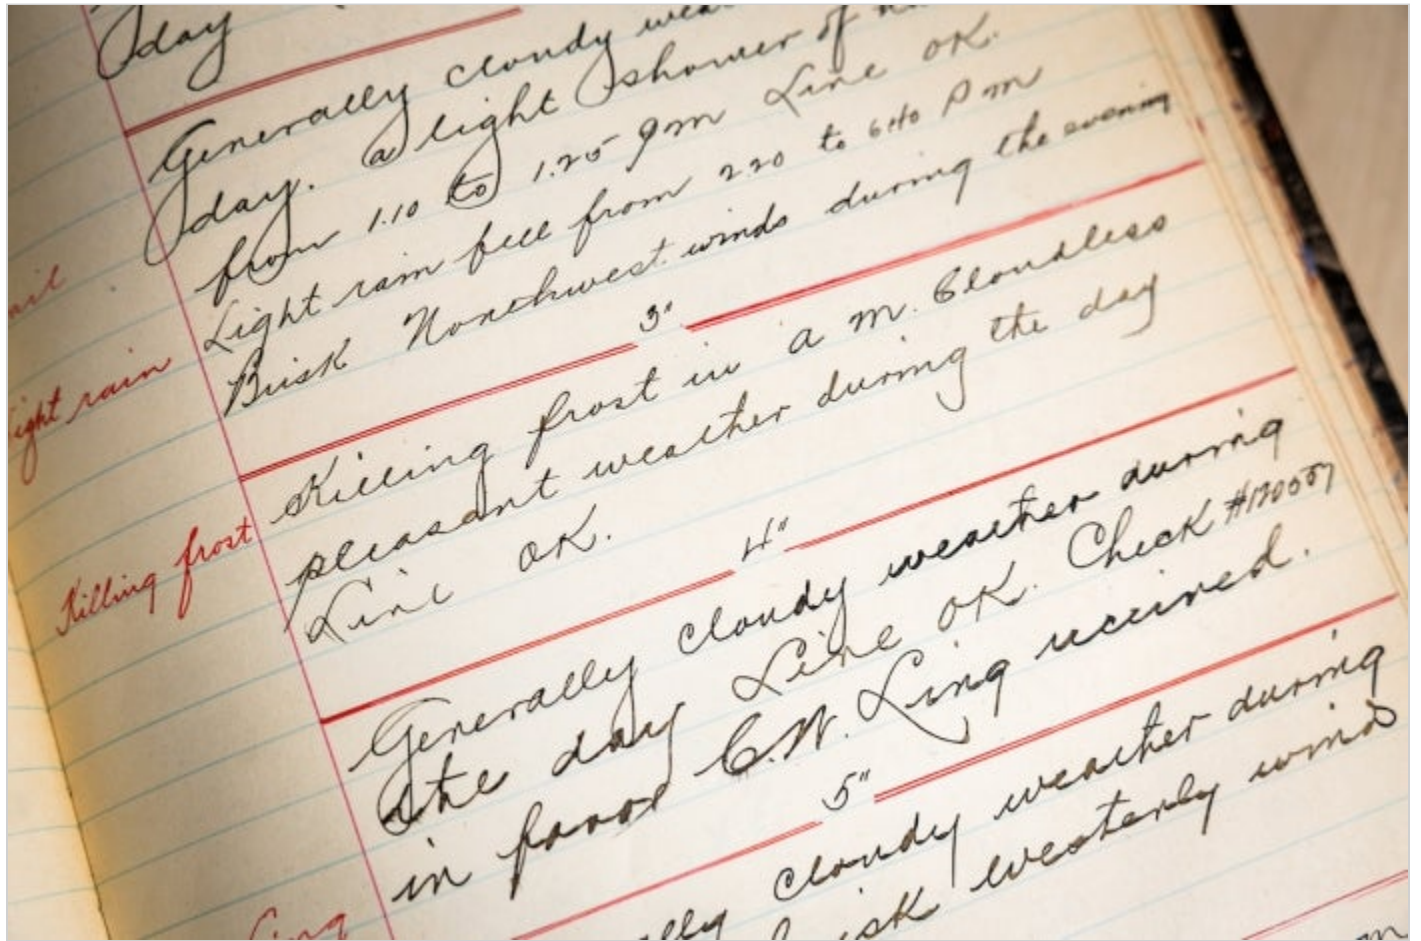 day
Generally cloudy
day. a light shower of
from 1.10 to 1.25 Pm Line OK.
Light rain fell from 2.20 to 6.40 Pm
Brisk Northwest winds during the evening
light rain
3"
Killing frost in a m. Cloudless
pleasant weather during the day
Line OK.
Killing frost
4"
Generally cloudy weather during
the day Line OK. Check
in favor C.W. Ling received.
5"
cloudy weather during
westerly wind